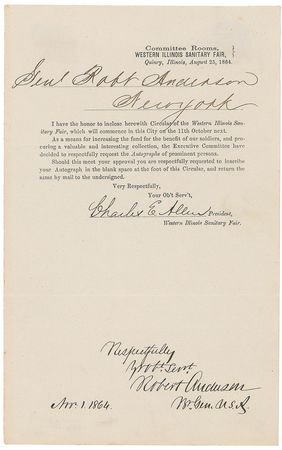 Committee Rooms,
WESTERN ILLINOIS SANITARY FAIR,
Quincy, Illinois, August 25, 1864.
Genl Robt Anderson
New York
I have the honor to inclose herewith Circular of the Western Illinois San-
itary Fair, which will commence in this City on the 11th October next.
As a means for increasing the fund for the benefit of our soldiers, and pro-
curing a valuable and interesting collection, the Executive Committee have
decided to respectfully request the Autographs of prominent persons.
Should this meet your approval you are respectfully requested to inscribe
your Autograph in the blank space at the foot of this Circular, and return the
same by mail to the undersigned.
Very Respectfully,
Your Ob't Serv't,
Charles E. Allen President,
Western Illinois Sanitary Fair.
Respectfully
Yr obt. Servt.
Robert Anderson
Nov. 1. 1864. Br. Gen. U.S.A.